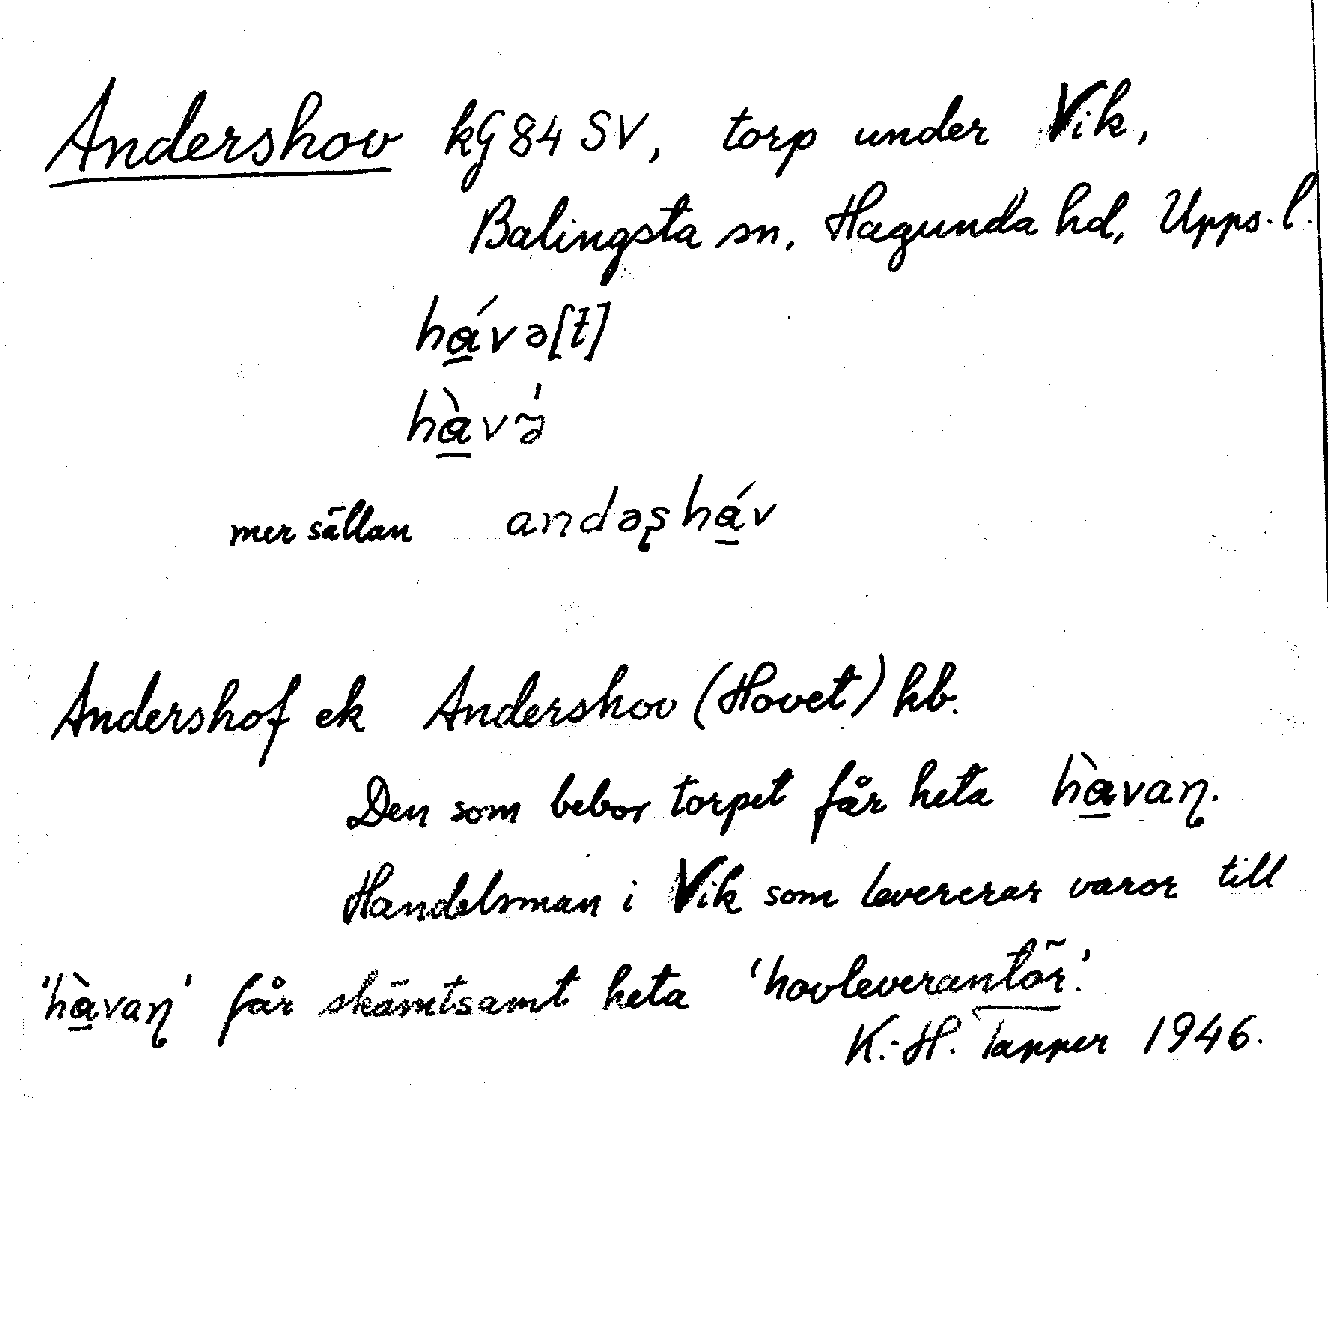 Andershov kG 84 SV, torp under Vik,
Balingsta sn, Hagunda hd, Upps. l.
hа̲́və[t]
hа̲̀və̃̍
mer sällan andəʂhа̲́v
Andershof ek Andershov (Hovet) hb.
Den som bebor torpet får heta hа̲̀vaɳ.
Handelsman i Vik som levererar varor till
'hа̲̀vaɳ' får skämtsamt heta 'hovleverantör'.
K.-H. Tapper 1946.